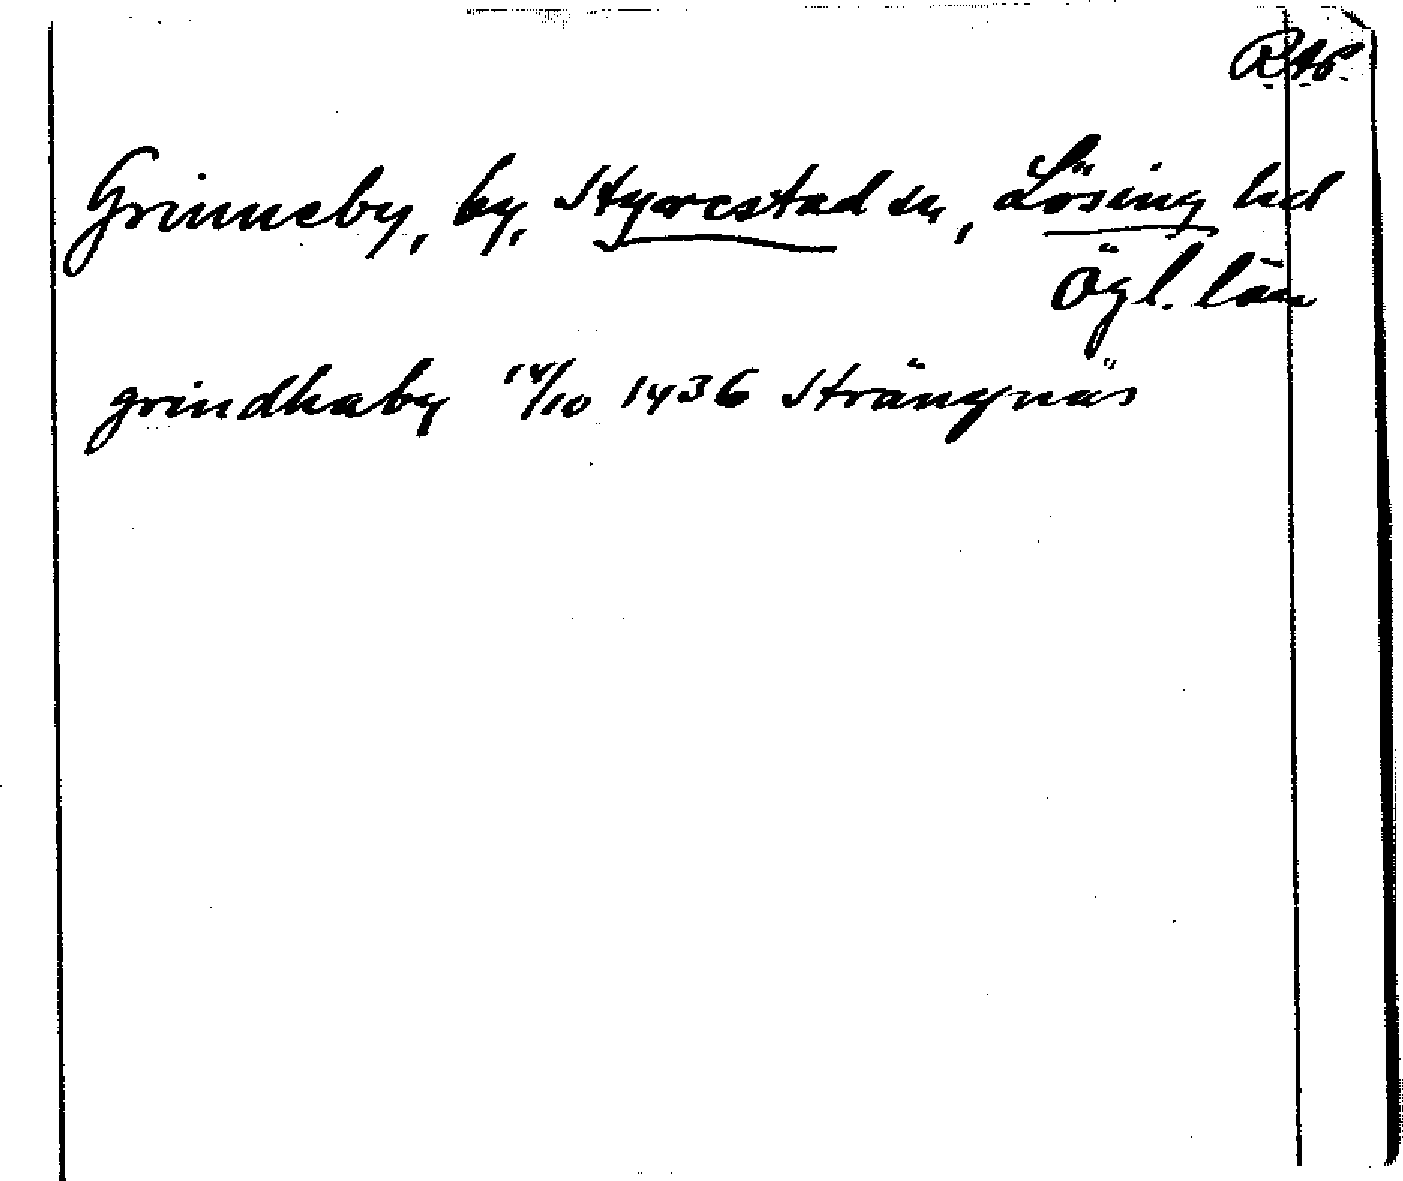 RAp
Grinneby, by, Styrestad sn, Lösing hd
Ögl. län
grindhaby 14/10 1436 Strängnäs